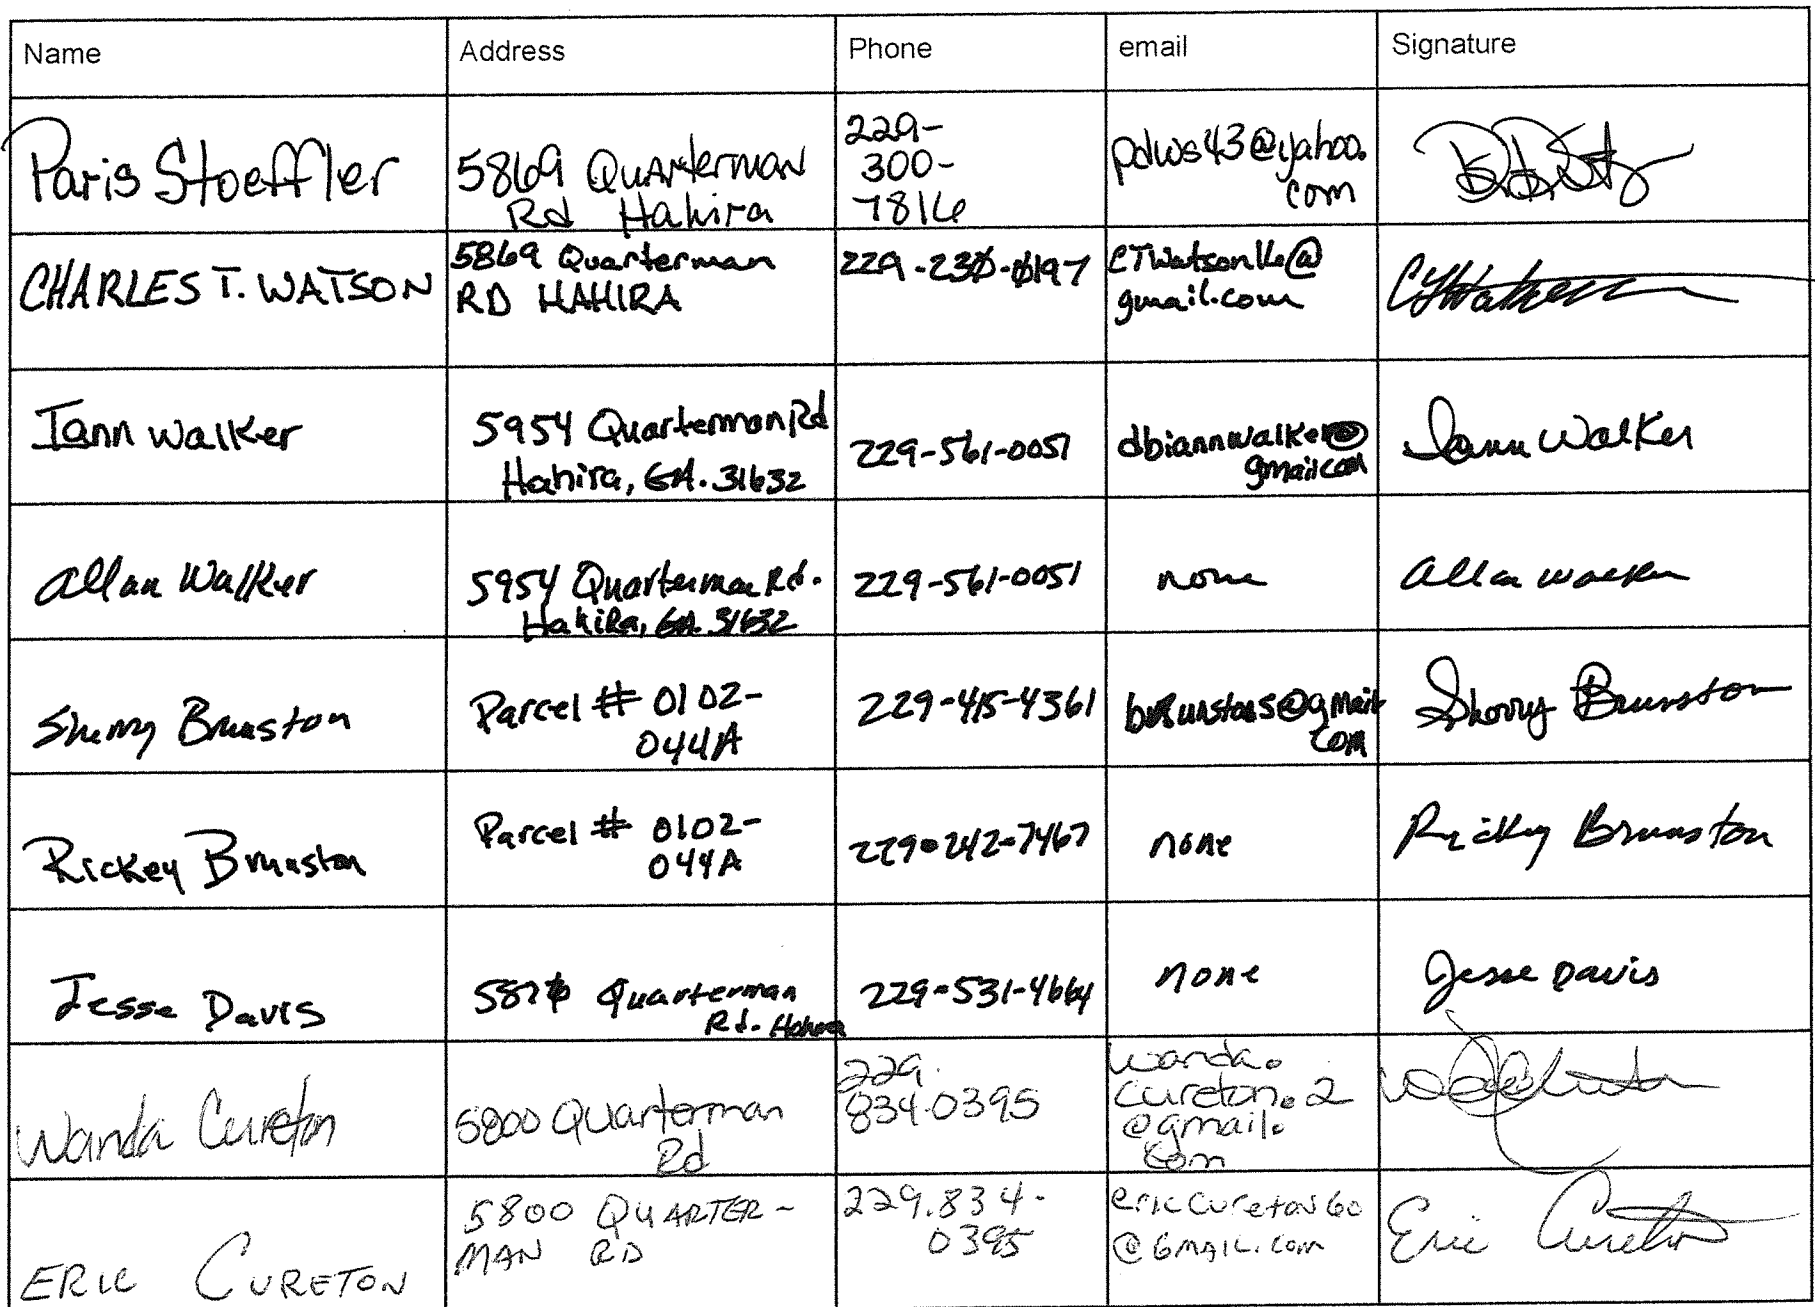 Name Address Phone email Signature
Paris Stoeffler
5869 Quarterman
Rd Hahira
229-
300-
7816
pdws43@yahoo.
com
CHARLES T. WATSON
5869 Quarterman
RD HAHIRA
229-230-0197
CTWatson16@
gmail.com
Iann Walker
5954 Quarterman Rd
Hahira, GA. 31632
229-561-0051
dbiannwalker@
gmail.com
Iann Walker
Allan Walker
5954 Quarterman Rd.
Hahira, GA. 31632
229-561-0051
none
Allan Walker
Sherry Brunston
Parcel # 0102-
044A
229-415-4361
brunston5@gmail
com
Sherry Brunston
Rickey Brunston
Parcel # 0102-
044A
229-242-7467
none
Rickey Brunston
Jesse Davis
5870 Quarterman
Rd. Hahira
229-531-4664
none
Jesse Davis
Wanda Cureton
5800 Quarterman
Rd
229.
834.0395
wanda.
cureton.2
@gmail.
com
ERIC CURETON
5800 QUARTER-
MAN RD
229.834-
0395
ericcureton60
@GMAIL.com
Eric Cureton